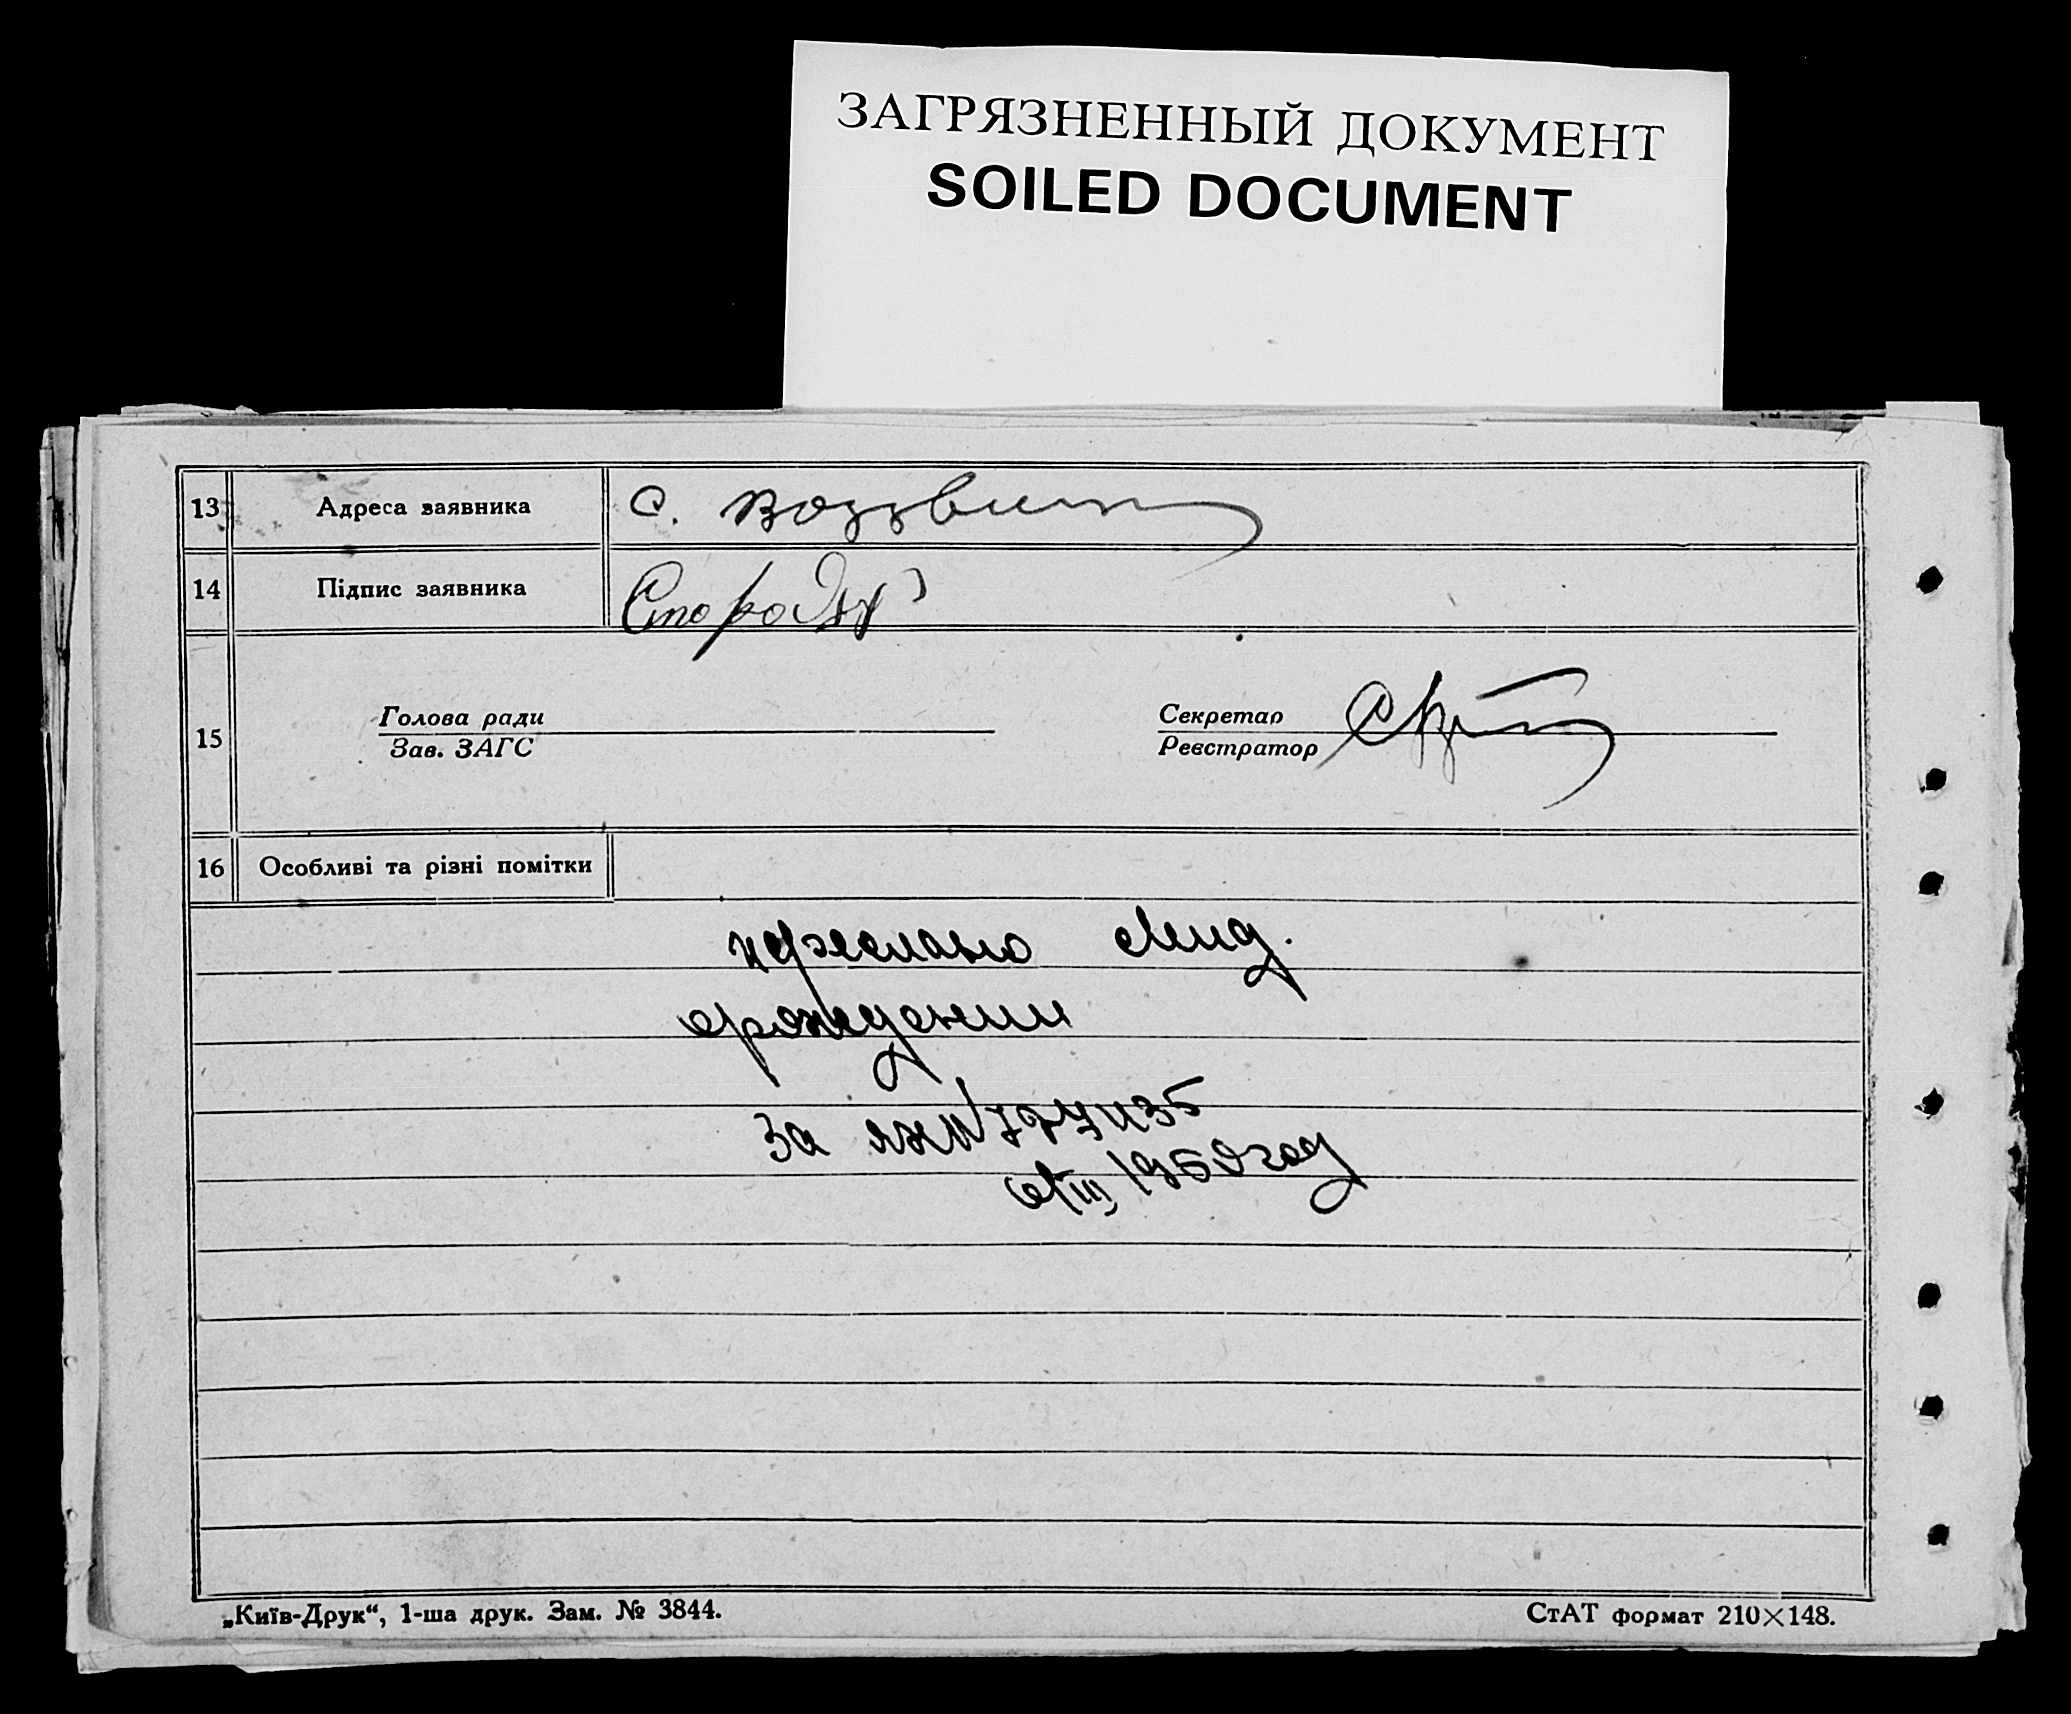 ЗАГРЯЗНЕННЫЙ ДОКУМЕНТ
SOILED DOCUMENT
13 Адреса заявника с. Воздвиж
14 Підпис заявника
Голова ради Секретар
15
Зав. ЗАГС Реєстратор
16 Особливі та різні помітки
выслано свид.
о рождении
За 35
1950 год
„Київ-Друк“, 1-ша друк. Зам. № 3844. СтАТ формат 210×148.